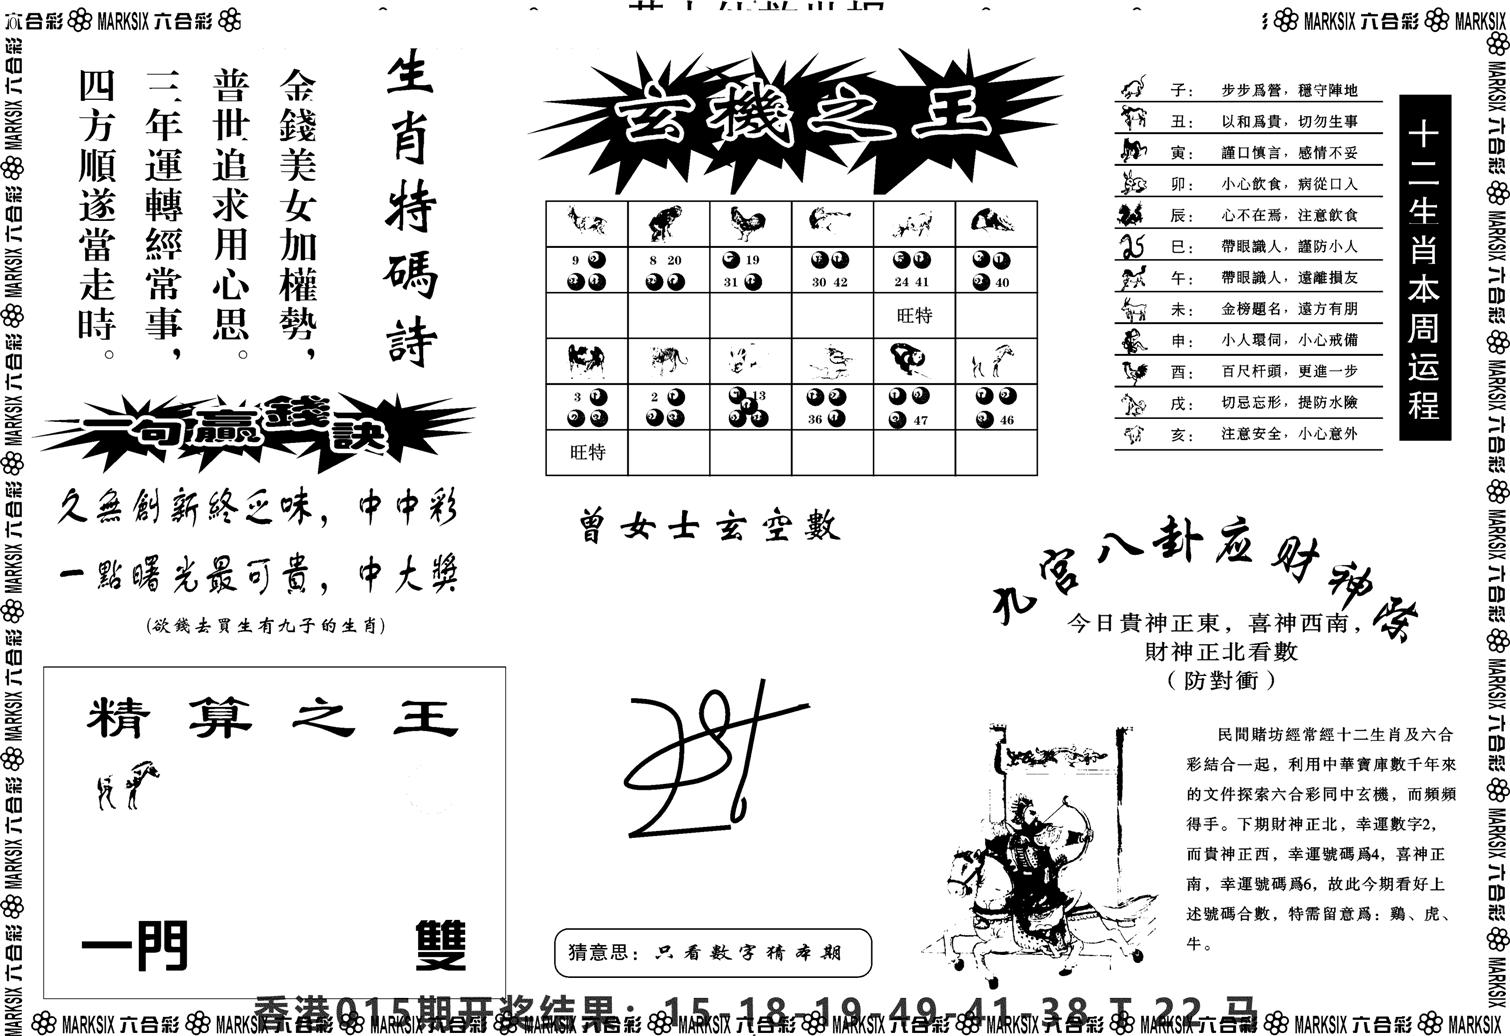 六合彩 MARKSIX 六合彩
MARKSIX 六合彩 MARKSIX
生肖特碼詩
金錢美女加權勢，
普世追求用心思。
三年運轉經常事，
四方順遂當走時。
一句贏錢訣
久無創新終乏味，中中彩
一點曙光最可貴，中大獎
(欲錢去買生有九子的生肖)
精算之王
一門
雙
玄機之王
9
8 20
19
31
30 42
24 41
40
旺特
3
2
13
36
47
46
旺特
曾女士玄空數
猜意思：只看數字猜本期
十二生肖本周运程
子： 步步爲營，穩守陣地
丑： 以和爲貴，切勿生事
寅： 謹口慎言，感情不妥
卯： 小心飲食，病從口入
辰： 心不在焉，注意飲食
巳： 帶眼識人，謹防小人
午： 帶眼識人，遠離損友
未： 金榜題名，遠方有朋
申： 小人環伺，小心戒備
酉： 百尺杆頭，更進一步
戌： 切忌忘形，提防水險
亥： 注意安全，小心意外
九宮八卦应财神
今日貴神正東，喜神西南，
財神正北看數
（防對衝）
民間賭坊經常經十二生肖及六合
彩結合一起，利用中華寶庫數千年來
的文件探索六合彩同中玄機，而頻頻
得手。下期財神正北，幸運數字2，
而貴神正西，幸運號碼爲4，喜神正
南，幸運號碼爲6，故此今期看好上
述號碼合數，特需留意爲：鷄、虎、
牛。
香港015期开奖结果：15-18-19-49-41-38 T 22 马
MARKSIX 六合彩 MARKSIX 六合彩